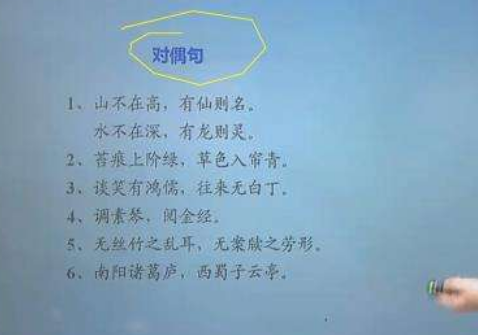 对偶句
1、山不在高，有仙则名。
水不在深，有龙则灵。
2、苔痕上阶绿，草色入帘青。
3、谈笑有鸿儒，往来无白丁。
4、调素琴，阅金经。
5、无丝竹之乱耳，无案牍之劳形。
6、南阳诸葛庐，西蜀子云亭。